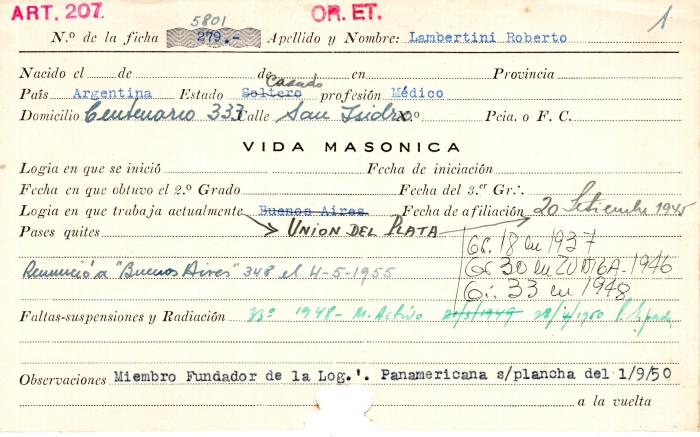 ART. 207. OR. ET. 1
5801
N.º de la ficha 279.- Apellido y Nombre: Lambertini Roberto
Nacido el de de en Provincia
Casado
País Argentina Estado Soltero profesión Médico
Domicilio Centenario 333 Calle San Isidro N.º Pcia. o F. C.
VIDA MASONICA
Logia en que se inició Fecha de iniciación
Fecha en que obtuvo el 2.º Grado Fecha del 3.er Gr∴
Logia en que trabaja actualmente Buenos Aires Fecha de afiliación 20 Setiembre 1945
Pases quites UNION DEL PLATA
Gr. 18 en 1937
Renunció a "Buenos Aires" 348 el 4-5-1955
Gr. 30 en 1946
Gr. 33 en 1948
Faltas-suspensiones y Radiación 33º 1948 - M. Activo 21/3/1949 28/4/1950
Observaciones Miembro Fundador de la Log.'. Panamericana s/plancha del 1/9/50
a la vuelta